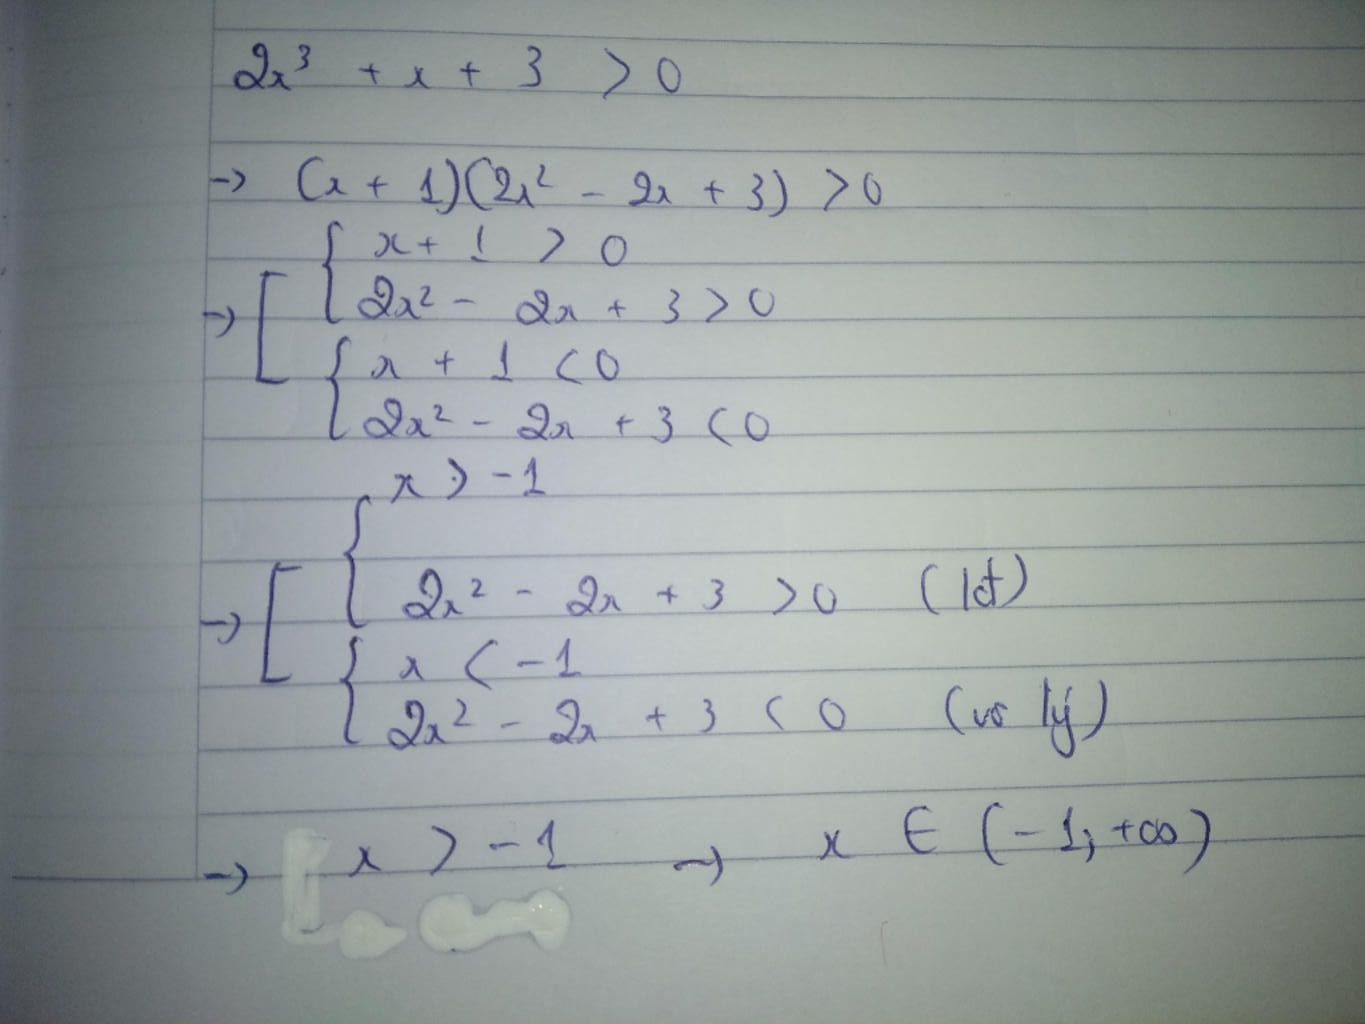 2x³ + x + 3 > 0
→ (x + 1)(2x² - 2x + 3) > 0
→ [ { x + 1 > 0
2x² - 2x + 3 > 0
{ x + 1 < 0
2x² - 2x + 3 < 0
→ [ { x > -1
2x² - 2x + 3 > 0 (lđ)
{ x < -1
2x² - 2x + 3 < 0 (vô lý)
→ x > -1 → x ∈ (-1; +∞)